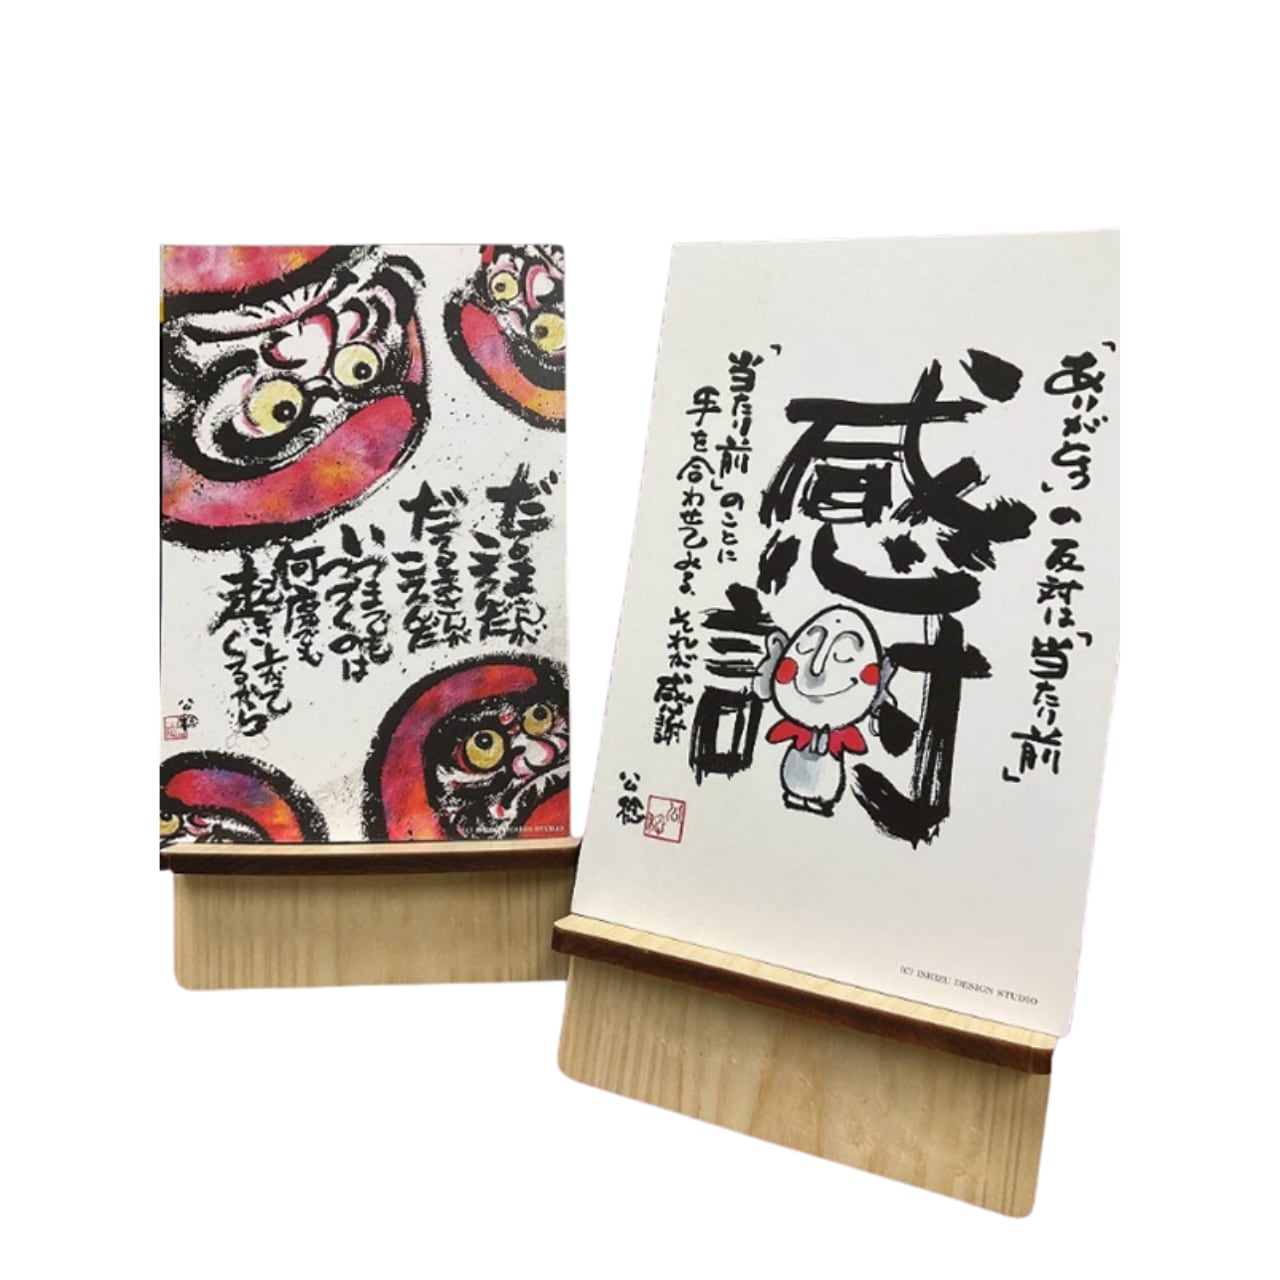 だるまさんが
ころんだ
だるまさんが
ころんだ
いつまでも
つづくのは
何度でも
起き上がって
くるから
公稔
(C) ISHIZU DESIGN STUDIO
「ありがとう」の反対は「当たり前」
感謝
「当たり前」のことに
手を合わせてみる、それが感謝
公稔
(C) ISHIZU DESIGN STUDIO